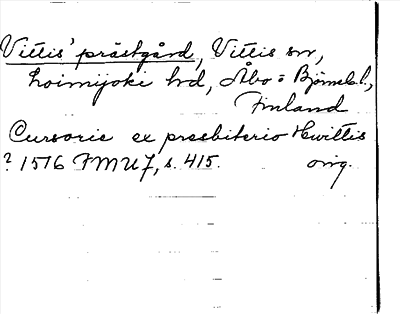 Vittis' prästgård, Vittis sn,
Loimijoki hd, Åbo = Björneb. l.,
Finland
Cursorie ex presbiterio Hwittis
? 1516 FMU 7, s. 415. orig.